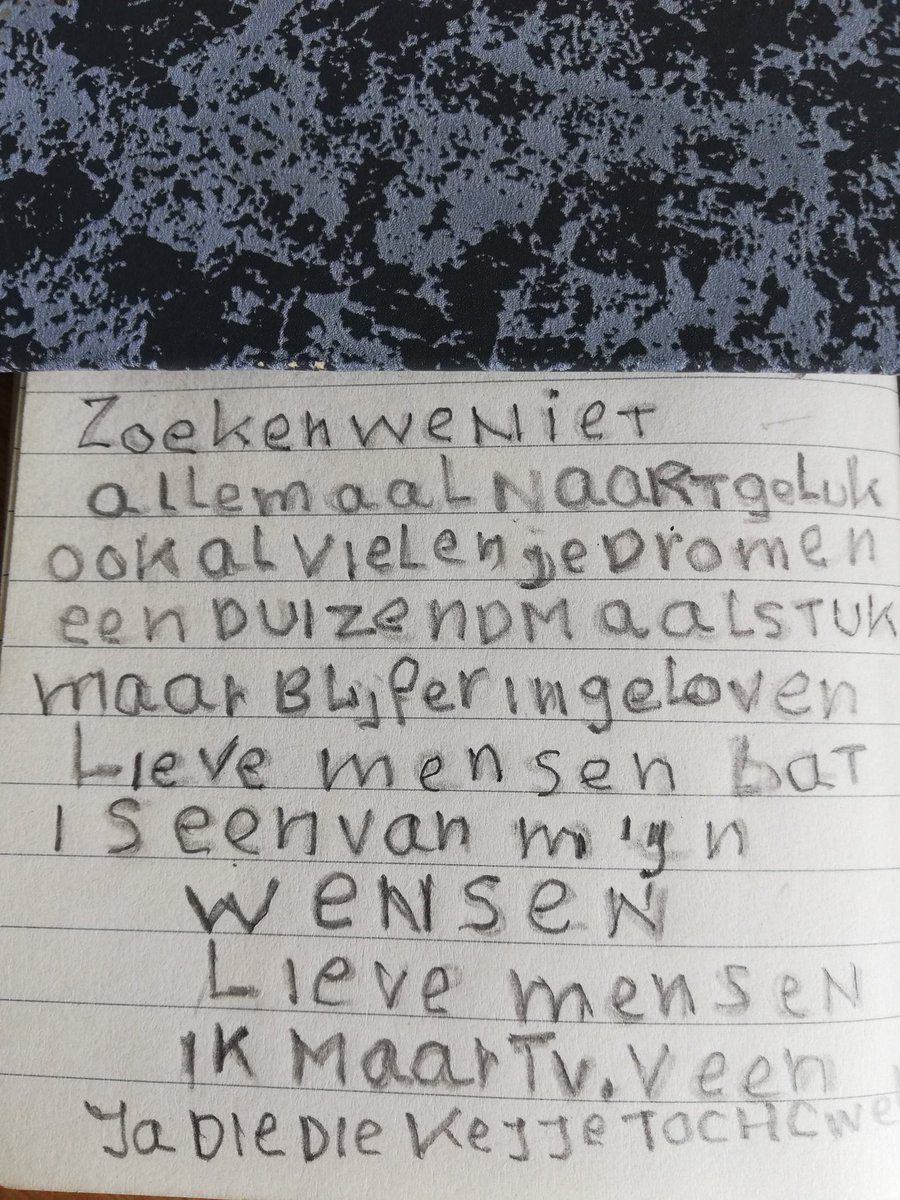 Zoeken we Niet
allemaal NaaRT geluk
ook al Vielen je Dromen
een DuizenDMaal STUK
maar Blijf er in geloven
Lieve mensen Dat
IS een van m'yn
WeNSeN
Lieve menSeN
IK MaarT v. Veen
Ja Die Die Kejje TOCHC wel